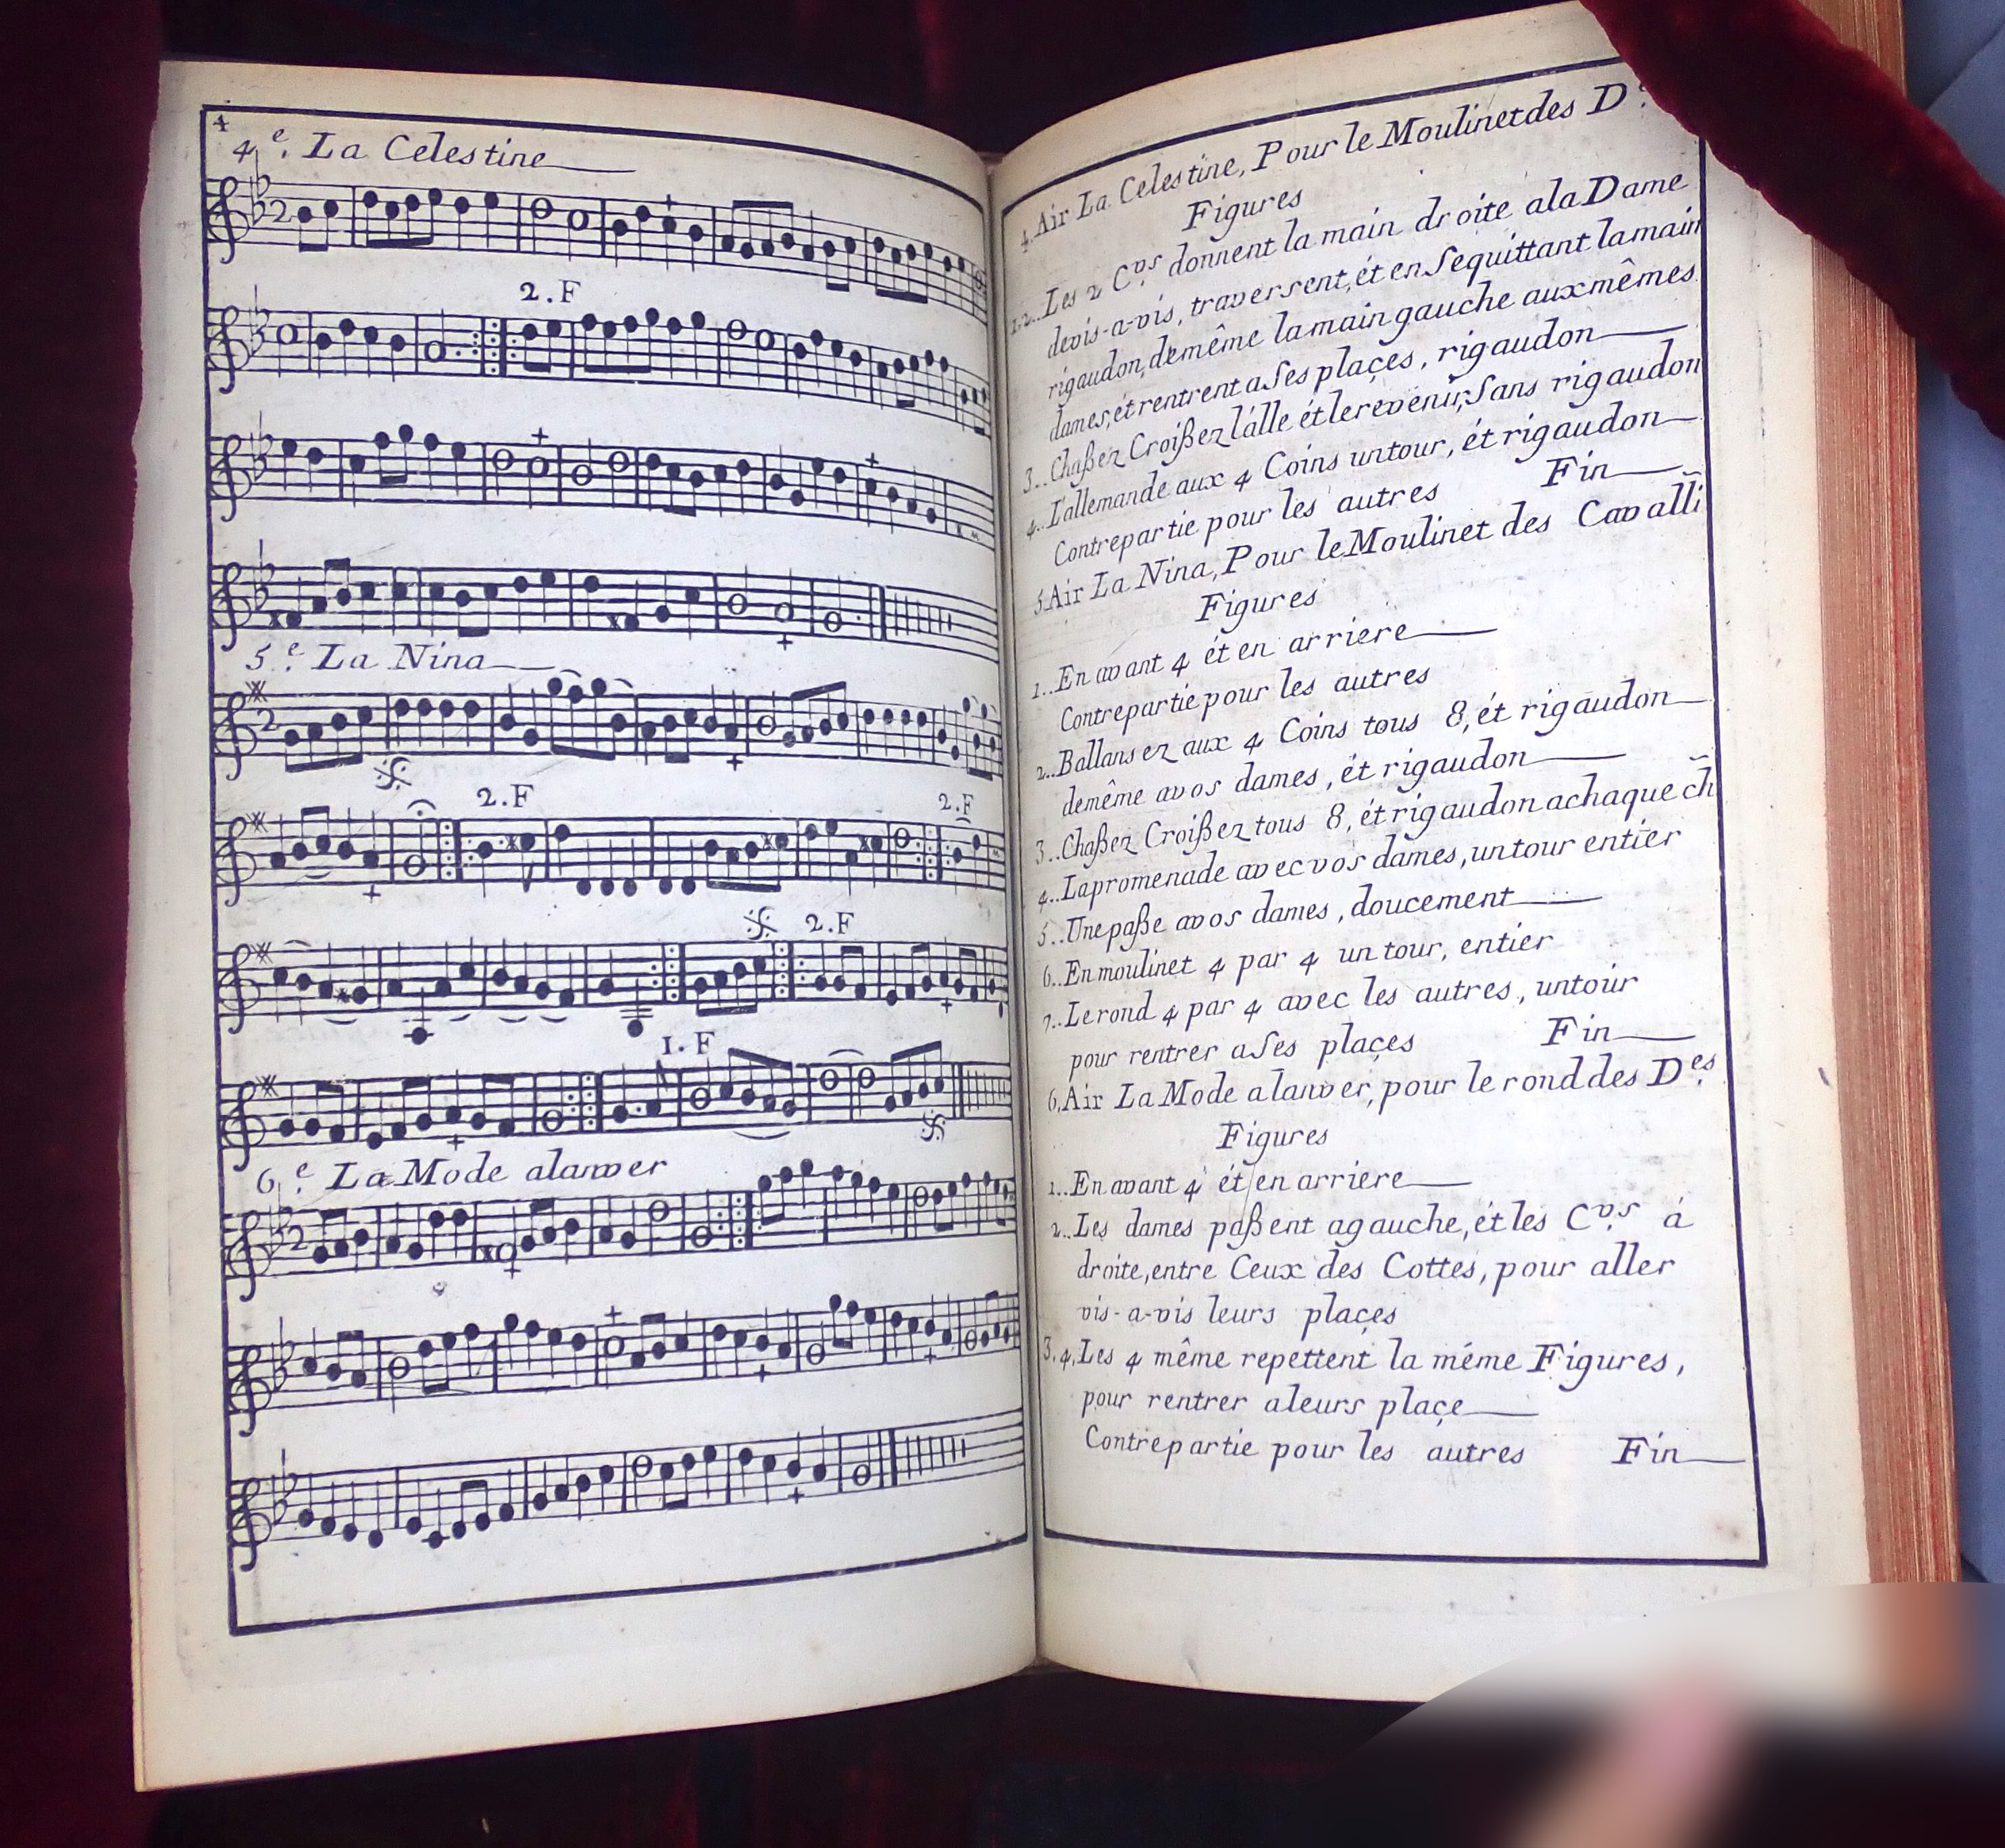 4
4.e La Celestine
2.F
5.e La Nina
2.F
2.F
2.F
1.F
6.e La Mode alanver
4. Air La Celestine, Pour le Moulinet des D.
Figures
1.2.. Les 2 C.vrs donnent la main droite a la Dame
devis-a-vis, traversent, ét en Sequittant la main
rigaudon, demême la main gauche aux mêmes
dames, ét rentrent a Ses plaçes, rigaudon
3.. Chaßez Croißez l'álle ét lerevenir, Sans rigaudon
4.. L'allemande aux 4 Coins un tour, ét rigaudon
Contrepartie pour les autres Fin
5. Air La Nina, Pour le Moulinet des Cavalli
Figures
1.. En avant 4 ét en arriere
Contrepartie pour les autres
2.. Ballansez aux 4 Coins tous 8, ét rigaudon
demême avos dames, ét rigaudon
3.. Chaßez Croißez tous 8, ét rigaudon achaque ch
4.. La promenade avec vos dames, un tour entier
5.. Une paße avos dames, doucement
6.. En moulinet 4 par 4 un tour, entier
7.. Le rond 4 par 4 avec les autres, un toür
pour rentrer a Ses plaçes Fin
6. Air La Mode alanver, pour le rond des D.es
Figures
1.. En avant 4 ét en arriere
2.. Les dames paßent agauche, ét les C.vrs á
droite, entre Ceux des Cottes, pour aller
vis-a-vis leurs plaçes
3.4. Les 4 même repettent la méme Figures,
pour rentrer aleurs plaçe
Contrepartie pour les autres Fin